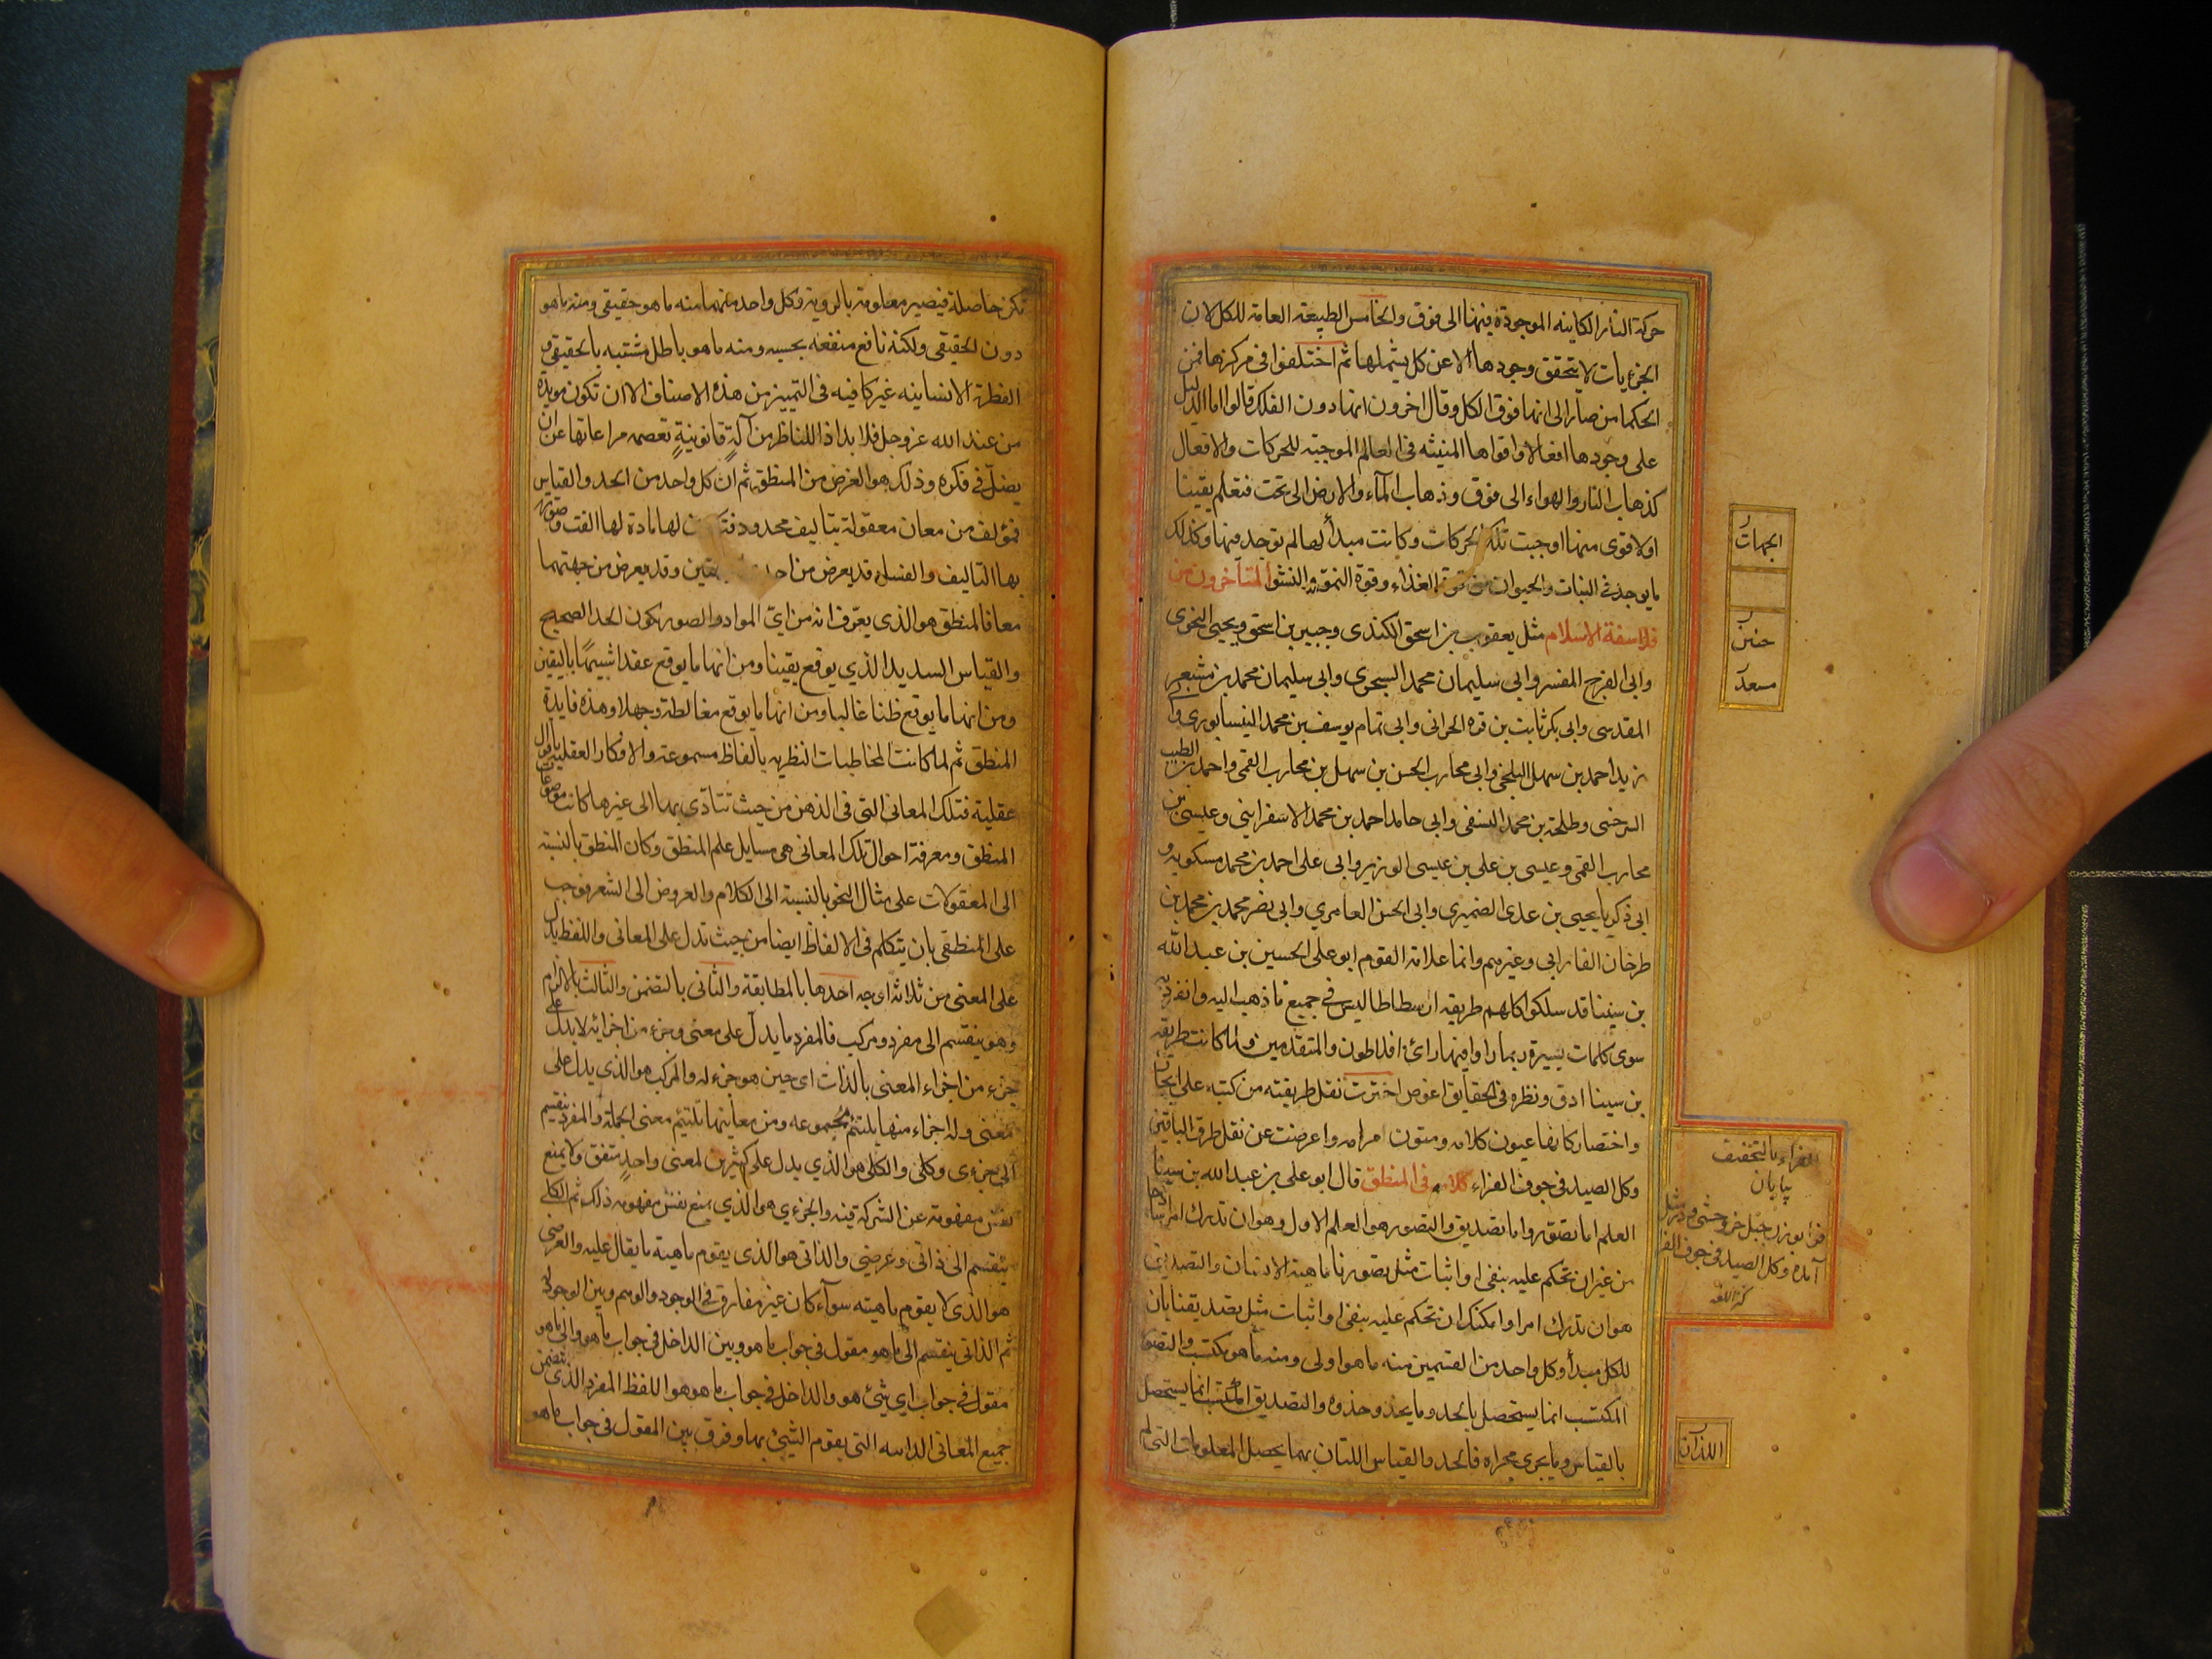 حركة النار الكاينه الموجودة فيها الى فوق والخامس الطبيعة العامة للكل لان
الجزءيات لا يتحقق وجودها الا عن كل يشملها ثم اختلفوا في مركزها فمن
الحكما من صار الى انها فوق الكل وقال اخرون انها دون الفلك قالوا اما الدليل
على وجودها افعالا واقواها المنبثه في العالم الموجبة للحركات والافعال
كذهاب النار والهواء الى فوق وذهاب المآء والارض الى تحت فنعلم يقينا
لولا قوى فيها اوجبت تلك الحركات وكانت مبدأ لها لم توجد فيها وكذلك
ما يوجد في النبات والحيوان من قوة الغذاء وقوة النمو والنشو المتأخرون من
فلاسفة الاسلام مثل يعقوب بن اسحق الكندى وحبيربن اسحق ويحيى النحوى
وابى الفرج المفسر وابى سليمان محمد السجزى وابى سليمان محمد بن مشعر
المقدسى وابى بكر ثابت بن قره الحرانى وابى تمام يوسف بن محمد النيسابورى وابى
زيد احمد بن سهل البلخى وابى محارب الحسن بن سهل بن محارب القمى واحمد بن الطيب
السرخسى وطلحة بن محمد النسفى وابى حامد احمد بن محمد الاسفراينى وعيسى بن
محارب القمى وعيسى بن على بن عيسى الوزير وابى على احمد بن محمد مسكويه و
ابى ذكريا يحيى بن عدى الضميرى وابى الحسن العامري وابى نصر محمد بن محمد بن
طرخان الفارابى وغيرهم وانما علامة القوم ابو على الحسين بن عبد الله
بن سينا قد سلكوا كلهم طريقه ارسطاطاليس في جميع ما ذهب اليه وانفرد به
سوى كلمات يسيرة ربما راوا فيها رائ افلاطون والمتقدمين ولما كانت طريقه
بن سينا ادق ونظره في الحقايق اغوص اخترت نقل طريقته من كتبه على ايجاز
واختصار كانها عيون كلامه ومتون مرامه واعرضت عن نقل طرق الباقين
وكل الصيد في جوف الفراء كلامه في المنطق قال ابو على بن عبد الله بن سينا
العلم اما تصور واما تصديق والتصور هو العلم الاول وهو ان تدرك امرا ساذجا
من غير ان تحكم عليه بنفى او اثبات مثل تصورنا ماهية الانسان والتصديق
هو ان تدرك امرا وامكنك ان تحكم عليه بنفى او اثبات مثل تصديقنا بان
للكل مبدأ وكل واحد من القسمين منه ما هو اولى ومنه ما هو مكتسب والتصور
المكتسب انما يستحصل بالحد وما يحذو حذوه والتصديق المكتسب انما يستحصل
بالقياس وما يجرى مجراه فالحد والقياس اللتان بهما يحصل المعلومات التى لم
الجهات
حنين
مسعد
الفراء بالتخفيف
بيابان
فرا بوزن جبل خر وحشى ودر مثل
آمده وكل الصيد في جوف الفرا
كنز اللغه
اللذان
تكن حاصلة فيصير معلومة بالروية وكل واحد منهما منه ما هو حقيقى ومنه ما هو
دون الحقيقى ولكنه نافع منفعه بحسبه ومنه ما هو باطل مشتبه بالحقيقى و
الفطرة الانسانيه غير كافيه في التمييز من هذه الاصناف الا ان تكون مويدة
من عند الله عز وجل فلا بد اذا للناظر من آلةٍ قانونيةٍ تعصمه مراعاتها عن ان
يضل في فكره وذلك هو الغرض من المنطق ثم ان كل واحد من الحد والقياس
فمؤلف من معان معقولة بتاليف محدود لها مادة لها الفت وصورة
بها التاليف والفساد قد يعرض من وقد يعرض من جهتهما
معا فالمنطق هو الذى يعرف انه من اىّ المواد والصور يكون الحد الصحيح
والقياس السديد الذي يوقع يقينا ومن انها ما يوقع عقدا شبيهًا باليقين
ومن انها ما يوقع ظنا غالبا ومن انها ما يوقع مغالطة وجهلا وهذه فايدة
المنطق ثم لما كانت المخاطبات النظرية بالفاظ مسموعة والافكار العقلية باقوال
عقلية فتلك المعانى التى في الذهن من حيث تتأدى بها الى غيرها كانت موضوعات
المنطق ومعرفة احوال تلك المعانى هى مسايل علم المنطق وكان المنطق بالنسبة
الى المعقولات على مثال النحو بالنسبة الى الكلام والعروض الى الشعر فوجب
على المنطقى بان يتكلم في الالفاظ ايضا من حيث تدل على المعانى واللفظ يدل
على المعنى من ثلاثة اوجه احدها بالمطابقة والثانى بالتضمن والثالث بالالتزام
وهو ينقسم الى مفرد ومركب فالمفرد ما يدل على معنى وجزء من اجزائه لا يدل على
جزء من اجزاء المعنى بالذات اى حين هو جزء له والمركب هو الذى يدل على
معنى وله اجزاء منها يلتئم مجموعه ومن معانيها تلتئم معنى الجملة والمفرد ينقسم
الى جزءى وكلى والكلى هو الذي يدل على كثيرين لمعنى واحدٍ متفق ولا يمنع
نفس مفهومه عن الشركة فيه والجزءي هو الذي يمنع نفس مفهومه ذلك ثم الكلى
ينقسم الى ذاتى وعرضى والذاتى هو الذى يقوم ماهية ما يقال عليه والعرضى
هو الذى لا يقوم ماهيته سوآء كان غير مفارق في الوجود والوهم وبين الوجود له
ثم الذاتى ينقسم الى ما هو مقول في جواب ما هو وبين الداخل في جواب ما هو والى ما هو
مقول في جواب اي شئ هو والداخل في جواب ما هو هو اللفظ المفرد الذى يتضمن
جميع المعانى الذاتيه التى يقوم الشئ بها وفرق بين المقول في جواب ما هو